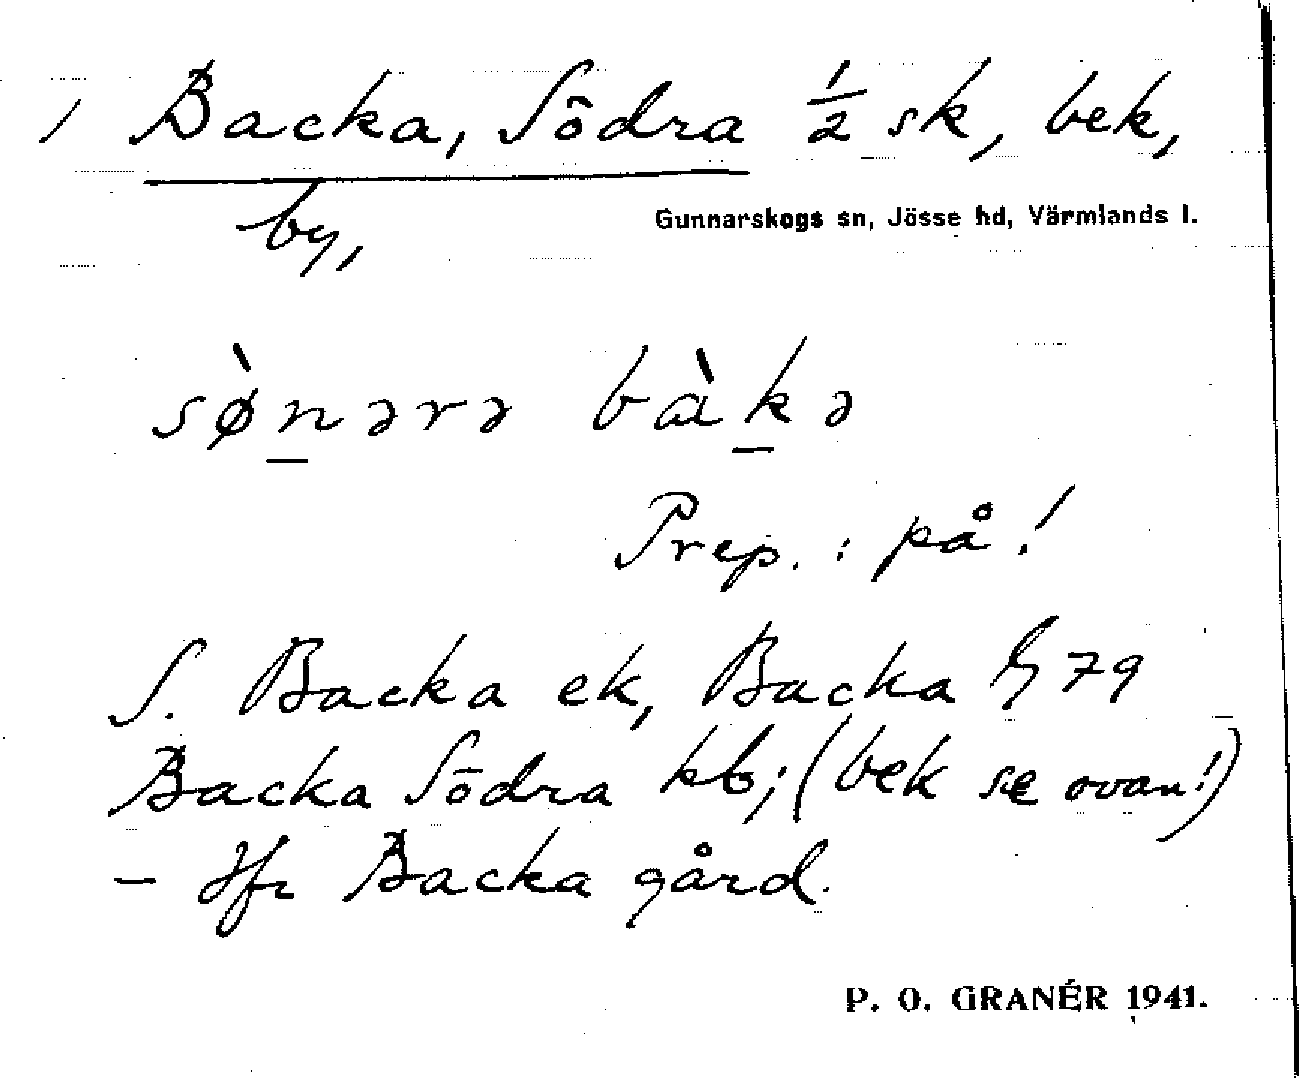 / Backa, Södra ½ sk, bek,
by,
Gunnarskogs sn, Jösse hd, Värmlands l.
sø̀nərə bàkə
Prep. : på!
S. Backa ek, Backa 79
Backa Södra kb; (bek se ovan!)
– Jfr Backa gård.
P. O. GRANÉR 1941.